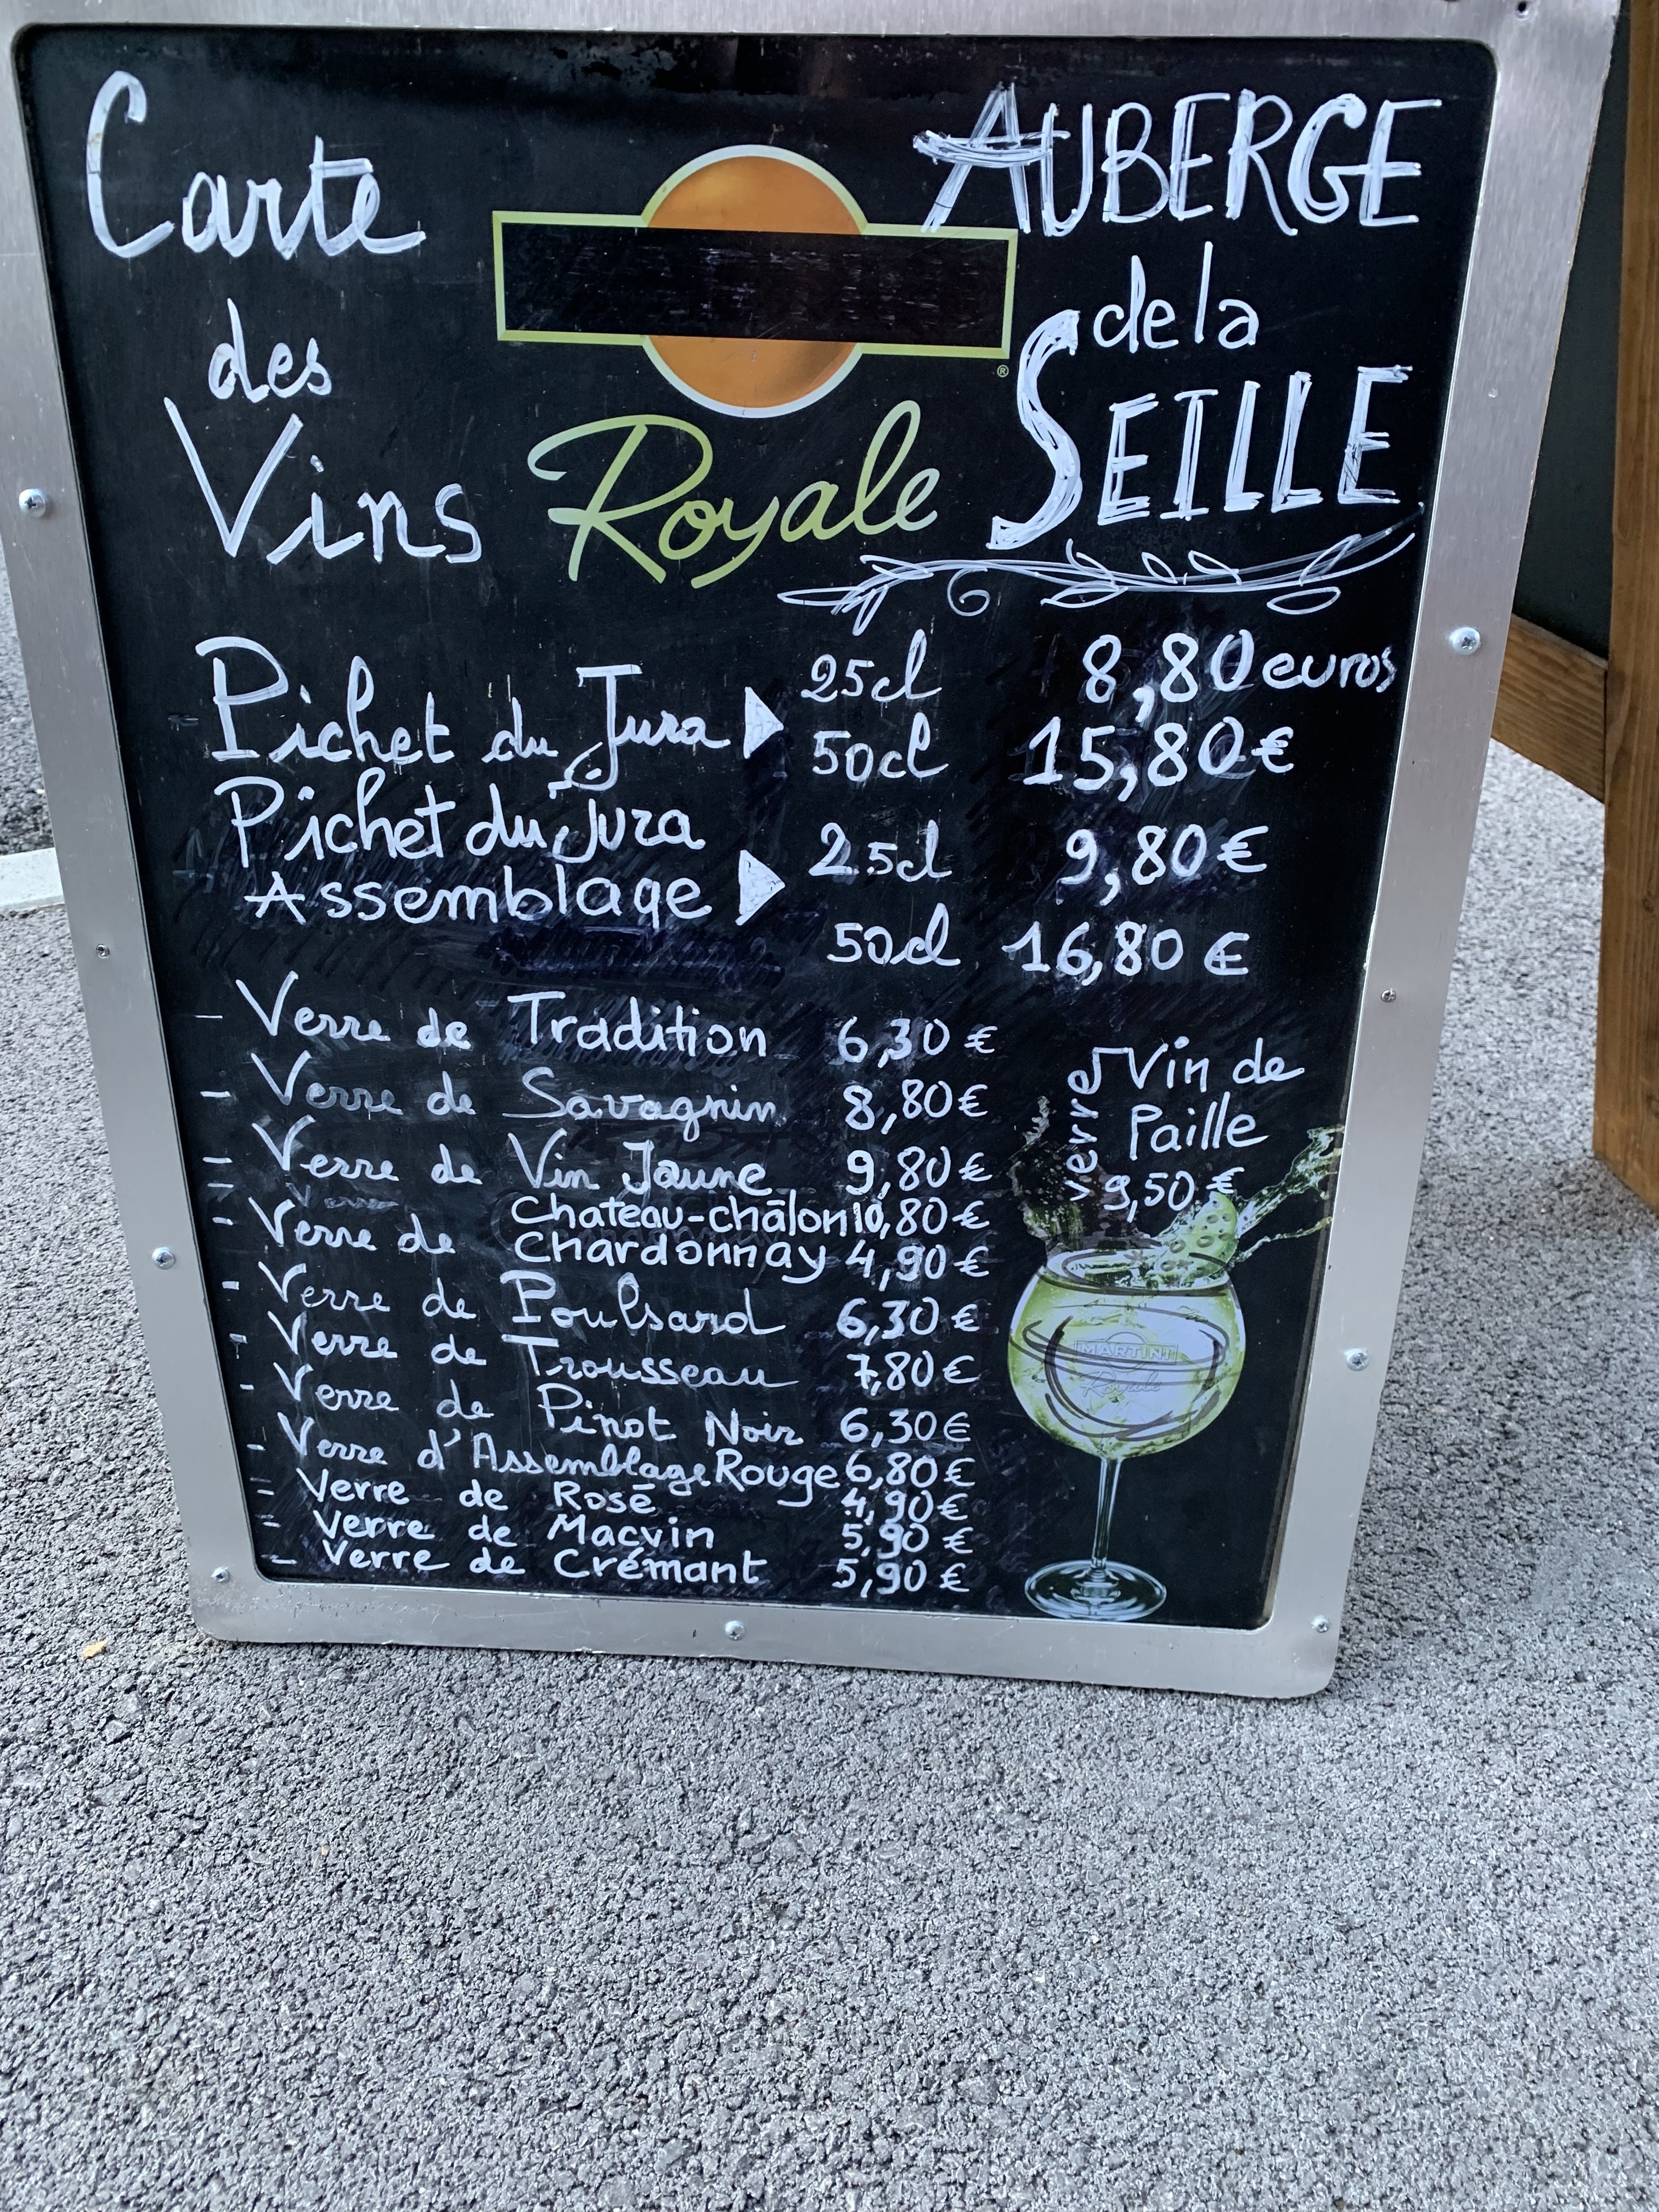 Carte
des
Vins
Royale
®
AUBERGE
de la
SEILLE
Pichet du Jura ▶ 25cl 8,80 euros
50cl 15,80 €
Pichet du Jura
Assemblage ▶ 25cl 9,80 €
50cl 16,80 €
- Verre de Tradition 6,30 €
- Verre de Savagnin 8,80 €
- Verre de Vin Jaune 9,80 €
Chateau-châlon 10,80 €
- Verre de Chardonnay 4,90 €
- Verre de Poulsard 6,30 €
- Verre de Trousseau 7,80 €
- Verre de Pinot Noir 6,30 €
- Verre d'Assemblage Rouge 6,80 €
- Verre de Rosé 4,90 €
- Verre de Macvin 5,90 €
- Verre de Crémant 5,90 €
verre Vin de
Paille
9,50 €
MARTINI
Royale